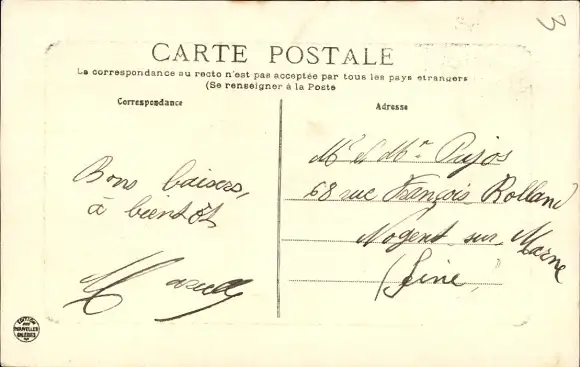 3
CARTE POSTALE
La correspondance au recto n'est pas acceptée par tous les pays etrangers
(Se renseigner à la Poste
Correspondance
Adresse
Bons baisers,
à bientôt
Mr et Mme Pujos
68 rue François Rolland
Nogent sur Marne
(Seine)
EDITION
DES
NOUVELLES
GALERIES